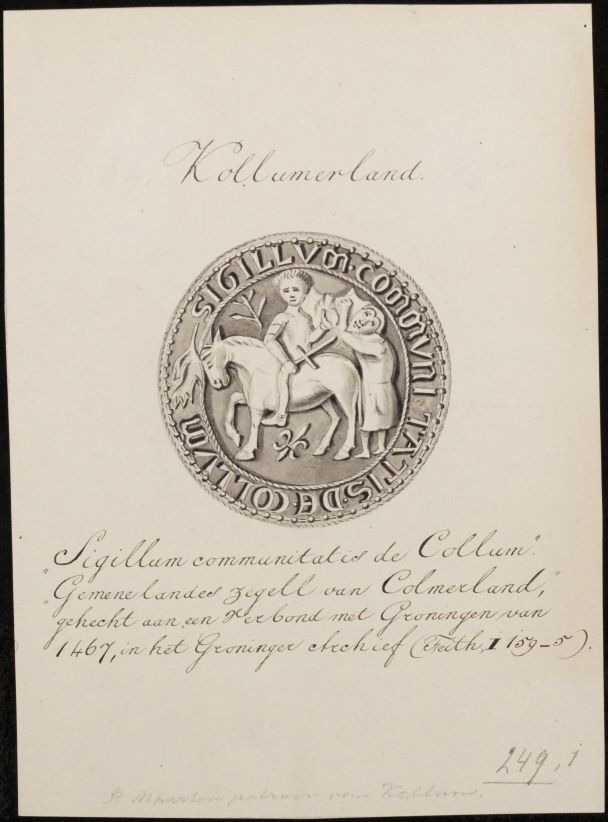 Kollumerland.
SIGILLVM COMMVNITATIS DE COLLVM
"Sigillum communitatis de Collum".
"Gemenelandes zegell van Colmerland,"
gehecht aan een Verbond met Groningen van
1467, in het Groninger Archief (Feith, I 159-5).
249,1
St Maarten patroon van Kollum.